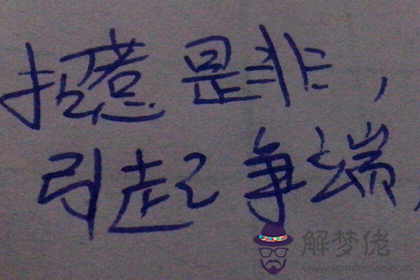 招惹是非，
引起争端，
解梦佬